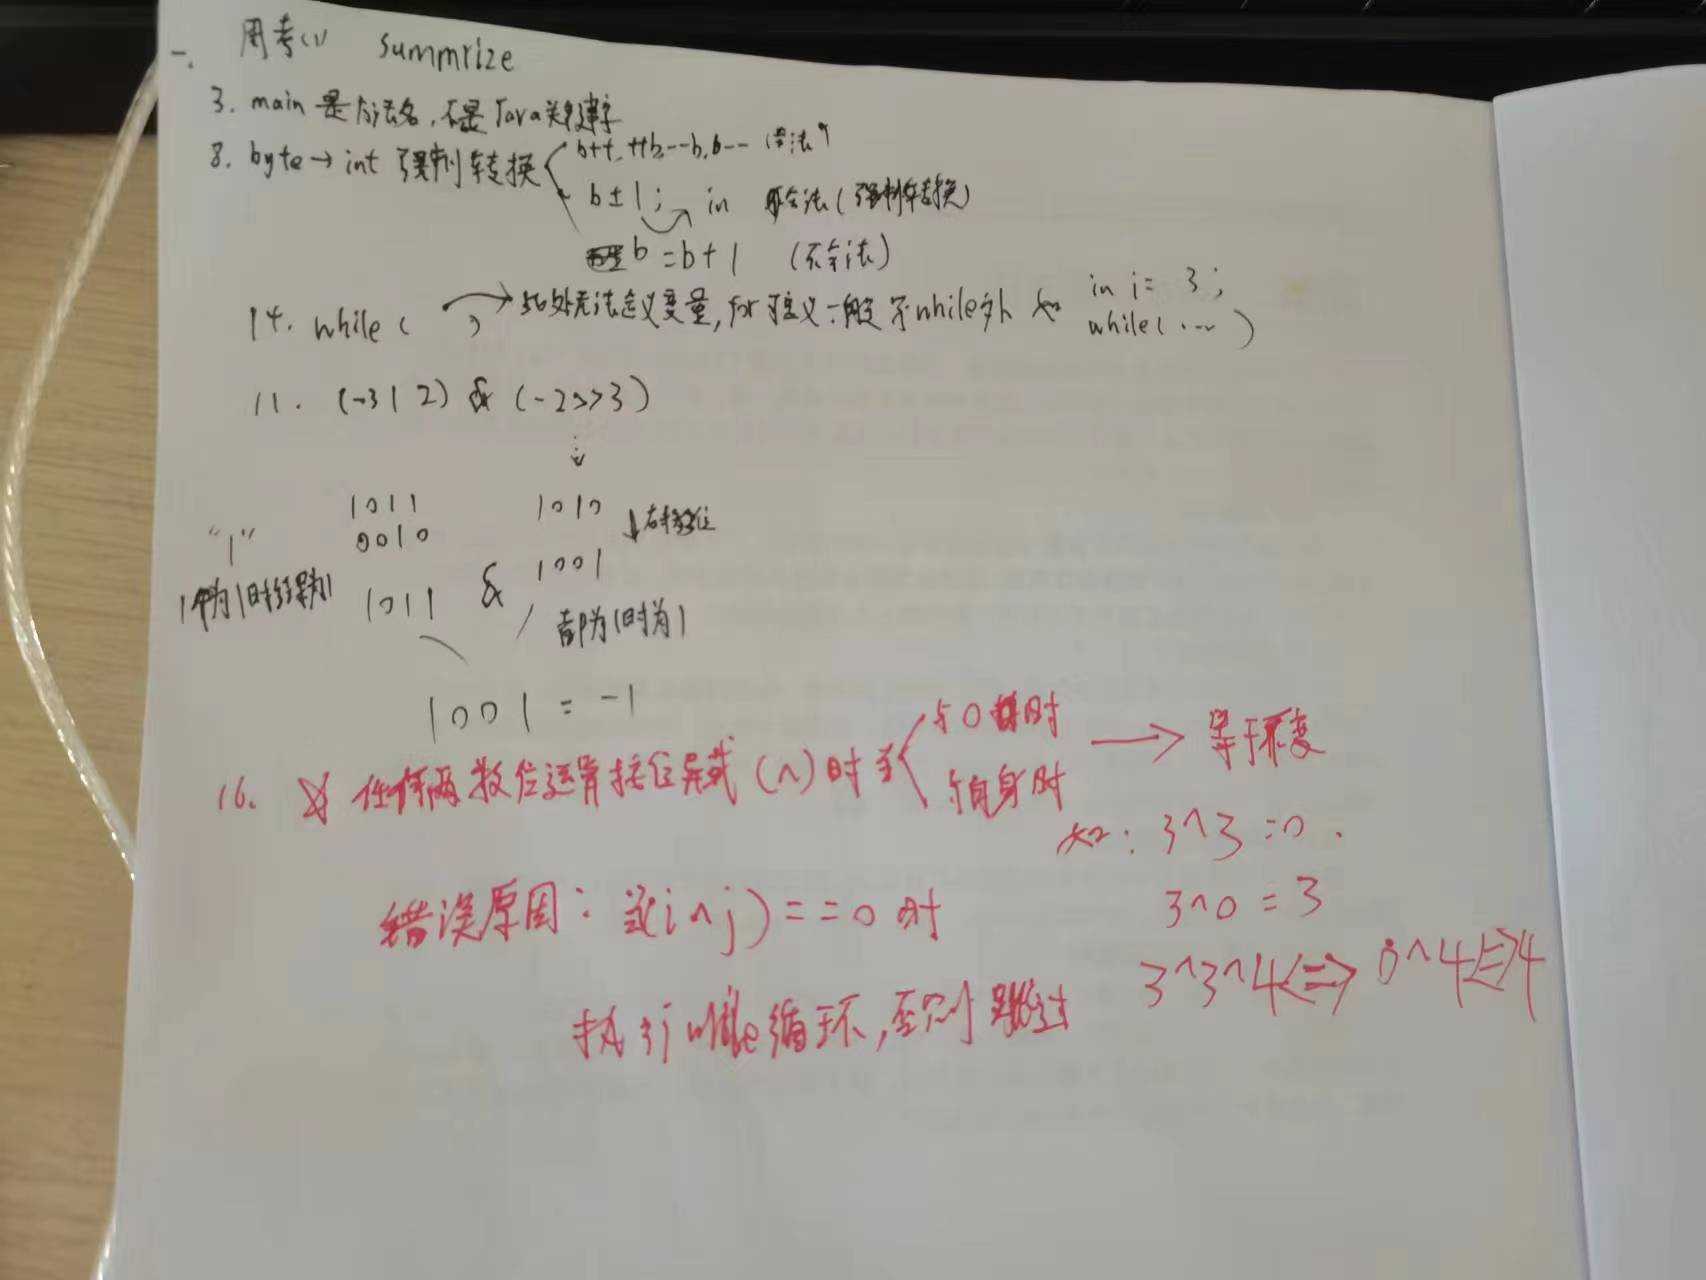 一. 周考(1) summrize
3. main 是方法名,不是Java关键字
8. byte → int 强制转换
b++, ++b, --b, b-- 合法
b±1; in 不合法(强制转换)
b = b+1 (不合法)
14. while( ) → 此处无法定义变量, for 可定义一般 不while外 如
in i= 3;
while(...)
11. (-3|2) & (-2>>3)
1011
1010
"|"
0010
右移3位
1001
1个为1时结果为1
1011 &
都为1时为1
1001 = -1
16. 任何两数位运算按位异或 (^) 时
与0时
与自身时
→ 等于不变
如: 3^3 =0.
3^0 = 3
3^3^4<=> 0^4<=>4
错误原因: 当(i^j)==0 时
执行while循环,否则跳过